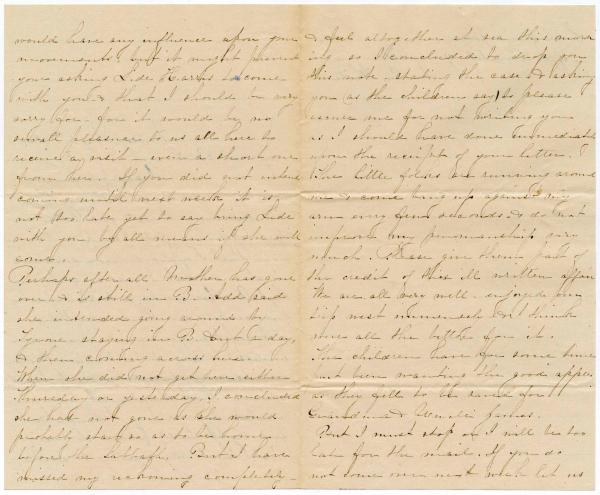 would have any influence upon your
movements, but it might prevent
your asking Lide Harris to come
with you & that I should be very
sorry for - for it would be no
small pleasure to us all here to
receive a visit - even a short one
from her. If you did not intend
coming until next week it is
not too late yet to say bring Lide
with you by all means if she will
come.
Perhaps after all Mother has gone
over & is still in B. Add said
she intended going around by
Tyrone, staying in B. but a day,
& then coming across here.
When she did not get here either
Thursday or yesterday, I concluded
she had not gone as she would
probably start so as to be home
before the Sabbath. But I have
missed my reckoning completely -
& feel altogether at sea this morn
ing so I concluded to drop you
this note - stating the case & asking
you (as the children say) to please
excuse me for not writing you
as I should have done immediately
upon the receipt of your letter.
The little folks are running around
me & come bang up against my
arm every few seconds & do not
improve my penmanship very
much. Please give them part of
the credit of this ill written affair
We are all very well - enjoyed our
trip most immensely & I think
were all the better for it.
The children have for some time
back been wanting the good apples
as they fell to be saved for
Grandma & Uncle James.
But I must stop or I will be too
late for the mail. If you do
not come over next week let us